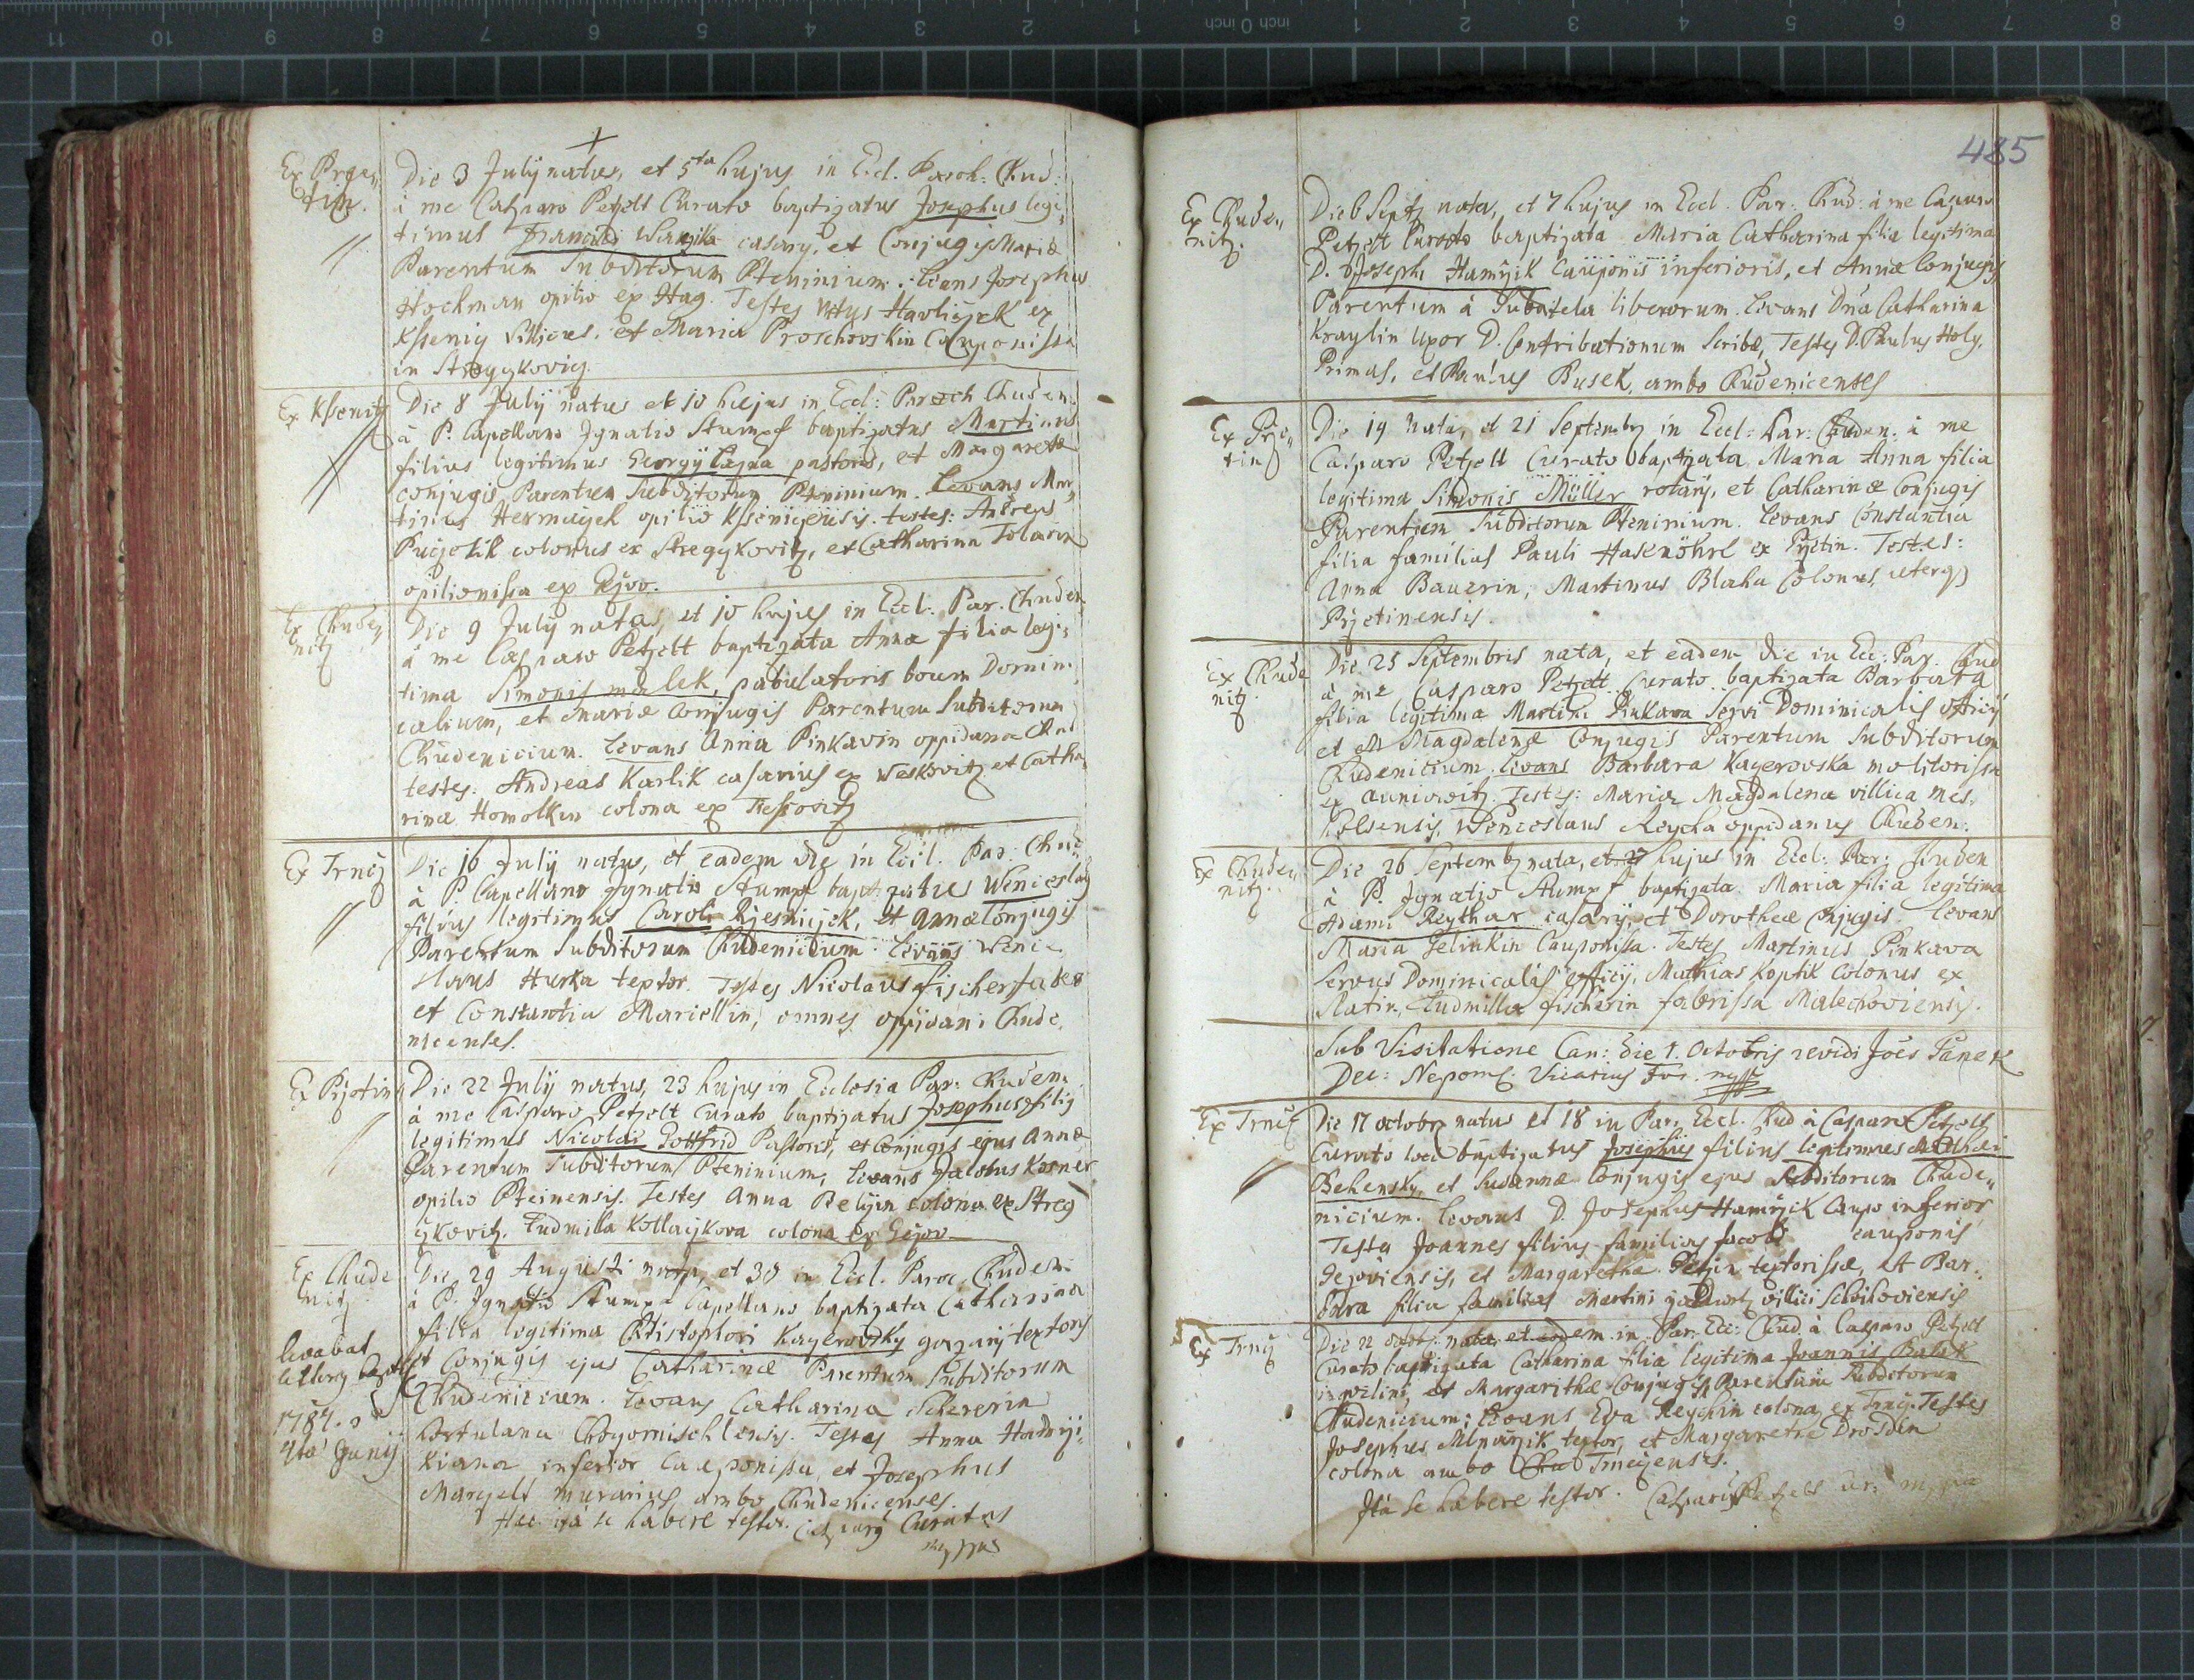 Ex Prze„
tin.
Die 3 July natus, et 5ta hujus in Eccl. Paroh: Chud:
à me Casparo Petzelt Curato baptizatus Josephus legi„
timus Francisci Wanzika casary, et Conjugis Mariæ
Parentum Subditorum Pteninium. Levans Josephus
Hochman opilio ex Hag. Testes Vitus Havliczek ex
Kssenig Villicus. et Maria Proschovskin Cauponissa
in Strzyzkovig.
Ex Kssenitz
Die 8 July natus et 10 hujus in Eccl: Paroch Chuden.
à P. Capellano Ignatio Stumpf baptizatus Martinus
filius legitimus Georgÿ Cajna pastoris, et Margaretæ
conjugis Parentum Subditorum Pteninium. Levans Mar„
tinus Hermazek opilio Kssenicensis. testes: Andreas
Puczelik colonus ex Strezykovitz, et Catharina Tolarin
opilionissa ex Gejov.
Ex Chude„
nitz
Die 9 July natas, et 10 hujus in Eccl: Par. Chuden.
à me Casparo Petzelt baptizata Anna filia legi„
tima Simonis malek, pabulatoris boum Domin.
calium, et Mariæ Conjugis Parentum Subditorum
Chudenicium. Levans Anna Pinkavin oppidana Chud
testes: Andreas Karlik casarius ex Weskovitz et Catha„
rina Homolkin colona ex
Ex Trnczj
Die 16 July natus, et eadem die in Eccl. Par: Chu„
à P. Capellano Ignatio Stumpf baptizatus Wenceslaus
filius legitimus Caroli Rzesniczek, et Annæ Conjugis
Parentum Subditorum Chudenicium: Levans Wence„
slaus Hurka textor. Testes Nicolaus Fischer faber
et Constantia Mariellin, omnes oppidani Chude„
nicenses.
Ex Przetin„
Die 22 July natus, 23 hujus in Ecclesia Par: Chuden:
à me Casparo Petzelt Curato baptizatus Josephus filius
legitimus Nicolai Gottfrid Pastoris, et Conjugis ejus Annæ
Parentum Subditorum Pteninium, Levans Jacobus Kosner
opilio Pteinensis. Testes Anna Belzin colona ex Streg
ÿkovitz. Ludmilla Kollarzkova colona ex Gejov.
Ex Chude
nitz
Die 29 Augusti nata, et 30 in Eccl. Paroc. Chuden:
à P. Ignatio Stumpf Capellano baptizata Catharina
filia legitima Christophori Kagerovsky gazarij textoris
et Conjugis ejus Catharinæ Parentum Subditorum
Chudenicium. Levans Catharina Schererin
hortulana Chozomischlensis. Testes Anna Hamyji„
kiana inferior Cauponissa, et Josephus
Marzelt murarius ambo Chudenicenses.
Hæc ita se habere testor. Caspary Curatus
mppria
levabat
litteras
1787.
4ta Junij
485
Ex Chude„
nitz.
Die 6 Septz nata, et 7 hujus in Eccl. Par. Chud: à me Casparo
Petzelt Curato baptizata Maria Catharina filia legitima
D. Josephi Hamÿik Cauponis inferioris, et Annæ Conjugis
Parentum à Subditela liberorum. Levans Dna Catharina
Kraylin Uxor D. Contributionum Scribæ, Testes D. Paulus Holy.
Primas, et Paulus Busek, ambo Chudenicenses
Ex Prze„
tin
Die 19 nata, et 21 Septembrz in Eccl: Par: Chuden: à me
Casparo Petzelt Curato baptizata Maria Anna filia
legitima Simonis Müller rotarÿ, et Catharinæ Conjugis
Parentum Subditorum Pteninium. Levans Constantia
filia familias Pauli Hasenöhrl ex Przetin. Testes:
Anna Bauerin, Martinus Blaha Colonus, uterqz
Przetinensis.
Ex Chude
nitz.
Die 25 Septembris nata, et eadem die in Ecc: Par. Chud
à me Casparo Petzelt Curato baptizata Barbara
filia legitima Martini Pinkava Servi Dominicalis officij
et M Magdalenæ Conjugis Parentum Subditorum
Chudenicium. Levans Barbara Kagerovska molitorissa
ex Auniowitz. Testes: Maria Magdalena villica mes.
holsensis, Wenceslaus Reycha oppidanus Chuden:
Ex Chude„
nitz.
Die 26 Septembz nata, et 27 hujus in Eccl: Par: Chuden
à P. Ignatio Stumpf baptizata Maria filia legitima
Adami Reythar casarij, et Dorotheæ Conjugis. Levans
Maria Jelinkin Cauponissa. Testes Martinus Pinkava
Servus Dominicalis officij, Mathias Koptik Colonus ex
Slatin, Ludmilla Fischerin fabrissa Malechoviensis.
Sub Visitatione Can: die 1. Octobris revidi Joës Panek
Dec: Nepom: Vicarius For. mpp
Ex Trncz
Die 17 octobr natus et 18 in Par. Eccl. Chud à Casparo Petzelt
Curato loci baptizatus Josephus filius legitimus Mathæi
Behensky, et Susannæ Conjugis ejus Subditorum Chude„
nicium. Levans D. Josephus Hamÿik Caupo inferior
Testes Joannes filius familias Jacobi cauponis
Gejoviensis, et Margaretha Petzin textorissæ, et Bar„
bara filia familias Martini villici Schihoviensis
Ex Trncz
Die 22 octob: nata et eodem in Par. Ecc: Chud. à Casparo Petzelt
Curato baptizata Catharina filia legitima Joannis Balak
inwilini et Margarithæ Conjugis Parentum Subditorum
Chudenicium: Levans Eva Reychin colona ex Trncz. Testes
Josephus Mlnarzik textor, et Margaretha Drosdin
colona ambo Trnczensis.
Ità se habere testor. Casparus Petzelt Cur: mppria